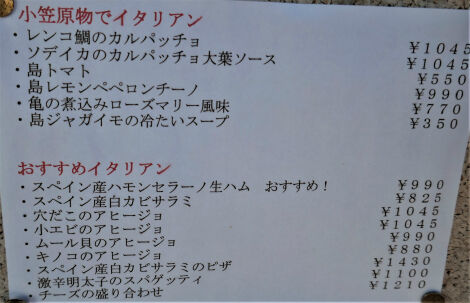 小笠原物でイタリアン
・レンコ鯛のカルパッチョ ￥1045
・ソデイカのカルパッチョ大葉ソース ￥1045
・島トマト ￥550
・島レモンペペロンチーノ ￥990
・亀の煮込みローズマリー風味 ￥770
・島ジャガイモの冷たいスープ ￥350
おすすめイタリアン
・スペイン産ハモンセラーノ生ハム おすすめ！ ￥990
・スペイン産白カビサラミ ￥825
・穴だこのアヒージョ ￥1045
・小エビのアヒージョ ￥1045
・ムール貝のアヒージョ ￥990
・キノコのアヒージョ ￥880
・スペイン産白カビサラミのピザ ￥1430
・激辛明太子のスパゲッティ ￥1100
・チーズの盛り合わせ ￥1210